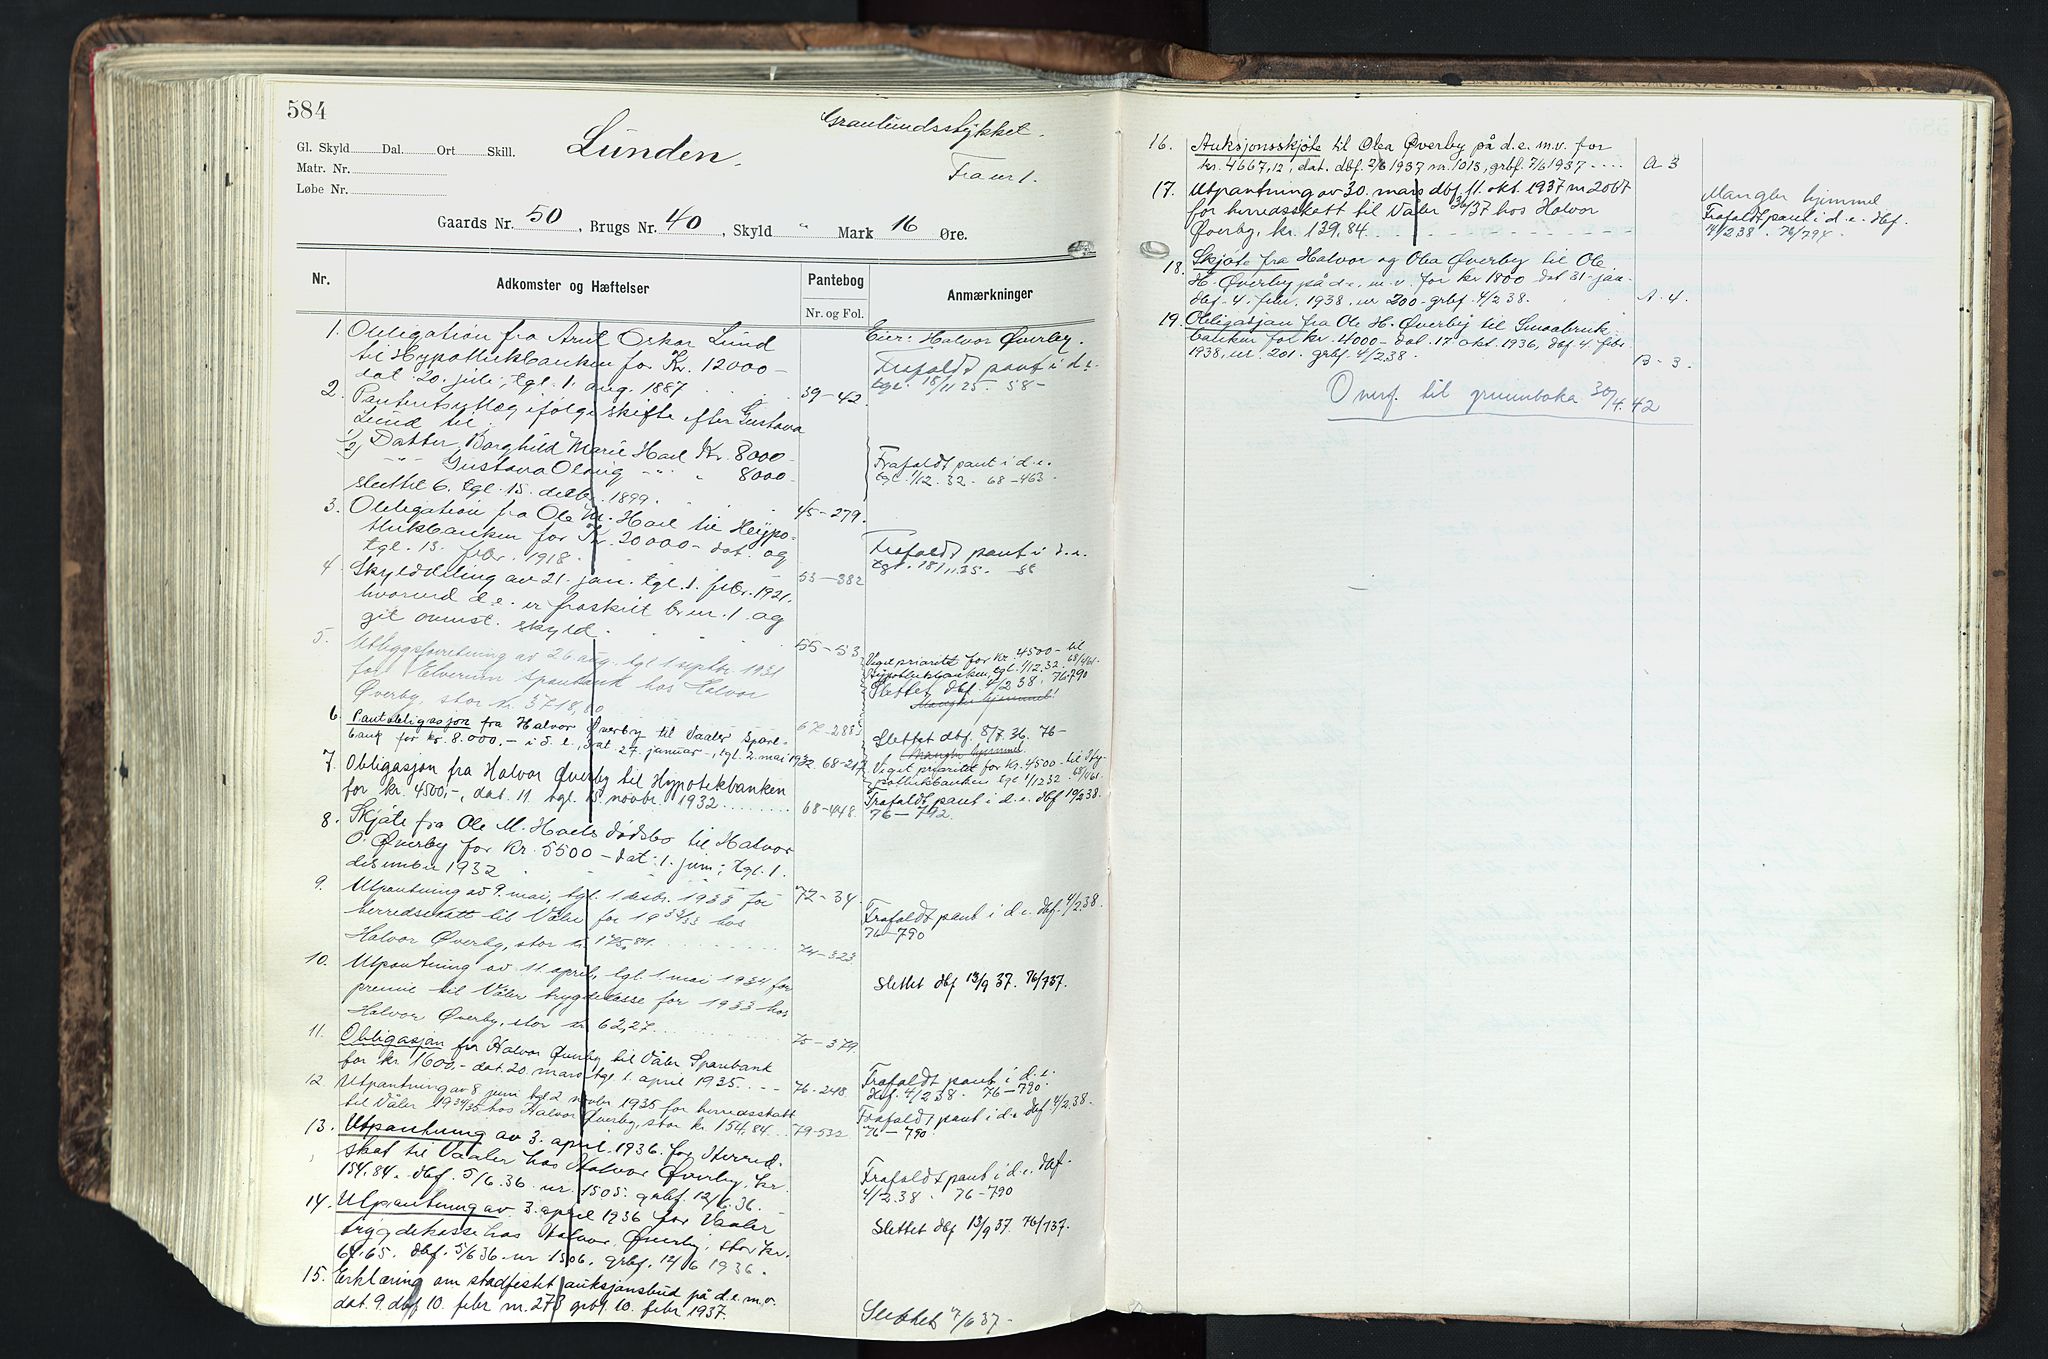 584
Granlundsstykket.
Gl. Skyld Dal. Ort Skill.
Lunden.
Matr. Nr.
Fra nr 1.
Løbe Nr.
Gaards Nr. 50, Brugs Nr. 40, Skyld " Mark 16 Øre.
Nr.
Adkomster og Hæftelser
Pantebog
Nr. og Fol.
Anmærkninger
1. Obligation fra Arnt Oskar Lund
til Hypothekbanken for Kr. 12000-
dat. 20. juli, tgl. 1. aug. 1887
39-42
Eier: Halvor Øverby.
Frafaldt pant i d.e.
tgl. 18/11 25. 58-
2. Panteutlæg ifølge skifte efter Gustava
Lund til:
1) Datter Borghild Marie Hoel Kr. 8000-
2) -"- Gustava Olaug -"- " 8000-
sluttet 6. tgl. 15. decbr. 1899.
45-279.
Frafaldt pant i d.e.
tgl. 1/12. 32. 68-463.
3. Obligation fra Ole M. Hoel til Hypo-
thekbanken for Kr. 20000- dat. og
tgl. 13. febr. 1918.
53-382
Frafaldt pant i d.e.
tgl. 18/11.25. 58
4. Skylddeling av 21. jan. tgl. 1. febr. 1921.
hvorved d.e. er fraskilt br.nr. 1 og
git ovenst. skyld.
55-53
5. Utleggsforretning av 26 aug. tgl 1 septbr. 1931
for Elverum Sparebank hos Halvor
Øverby, stor kr. 3718,80
67-288
Veget prioritet for kr. 4500- til
Hypothekbanken, tgl. 1/12.32. 68/461.
Slettet dbf. 4/2 38. 76-790
Mangler hjemmel!
6. Pantobligasjon fra Halvor Øverby til Vaaler Spare-
bank for kr. 8.000,- i d.e., dat. 27. januar, tgl. 2. mai 1932
68-217
Slettet dbf. 8/7. 36. 76-
Mangler hjemmel
Veget prioritet for Kr. 4500- til Hy-
pothekbanken tgl 1/12 32. 68/461.
7. Obligasjon fra Halvor Øverby til Hypotekbanken
for kr. 4500,-, dat. 11. tgl. 15 novbr. 1932
68-448.
Frafaldt pant i d.e. dbf 19/2 38.
76-792.
8. Skjøte fra Ole M. Hoels dødsbo til Halvor
O. Øverby for Kr. 5500- dat. 1. juni; tgl. 1.
desember 1932
72-34.
9. Utpantning av 9. mai, tgl. 1 desbr. 1933 for
herredskatt til Våler for 1932/33 hos
Halvor Øverby, stor kr. 175,84.
74-323
Frafaldt pant i d.e. dbf. 4/2.38.
76-790
10. Utpantning av 11. april, tgl. 1. mai 1934 for
premie til Våler trygdekasse for 1933 hos
Halvor Øverby, stor kr 62,27.
75-379.
Slettet dbf 13/9 37. 76/737.
11. Obligasjon fra Halvor Øverby til Våler Sparebank
for kr. 1600,- dat. 20. mars tgl. 1. april 1935.
76-248
Frafaldt pant i d.e.
dbf. 4/2 38. 76-790.
12. Utpantning av 8 juni tgl 2 novbr 1935 for herredsskatt
til Våler 1934/35 hos Halvor Øverby, stor kr. 154,84.
79-532
Frafaldt pant i d.e dbf 4/2.38-
76-790.
13. Utpantning av 3. april 1936 for Herred-
skat til Vaaler hos Halvor Øverby, kr.
154,84. dbf. 5/6.36. nr. 1505. grbf. 12/6.36.
Frafaldt pant i d.e. dbf.
4/2.38. 76-790
14. Utpantning av 3. april 1936 for Vaaler
trygdekasse hos Halvor Øverby, stor kr.
64.65. dbf. 5/6 36. nr 1506. grbf. 12/6 1936.
Slettet dbf 13/9 37. 76/737.
15. Erklæring om stadfestet auksjonsbud på d.e.m.v.
dat. 9. dbf 10. febr nr. 273 grbf. 10. febr 1937.
Slettet 7/6 37-
16. Auksjonsskjøte til Olea Øverby på d.e.m.v. for
kr. 4667,12, dat. dbf. 2/6 1937 nr. 1013, grbf. 7/6 1937
A 3
17. Utpantning av 30. mars dbf. 11. okt. 1937 nr 2067
for herredsskatt til Våler 36/37 hos Halvor
Øverby, kr. 139.84.
Mangler hjemmel
Frafaldt pant i d.e. dbf.
4/2 38. 76/794.
18. Skjøte fra Halvor og Olea Øverby til Ole
H. Øverby på d.e. m.v. for kr 1800 dat 31- jan-
dbf. 4. febr. 1938. nr 200- grbf. 4/2 38.
A. 4.
19. Obligasjon fra Ole H. Øverby til Smaabruk-
banken for kr. 4000- dat. 17 okt. 1936, dbf. 4. febr
1938, nr. 201. grbf. 4/2 38.
B-3.
Overf. til grunnboka 30/4.42